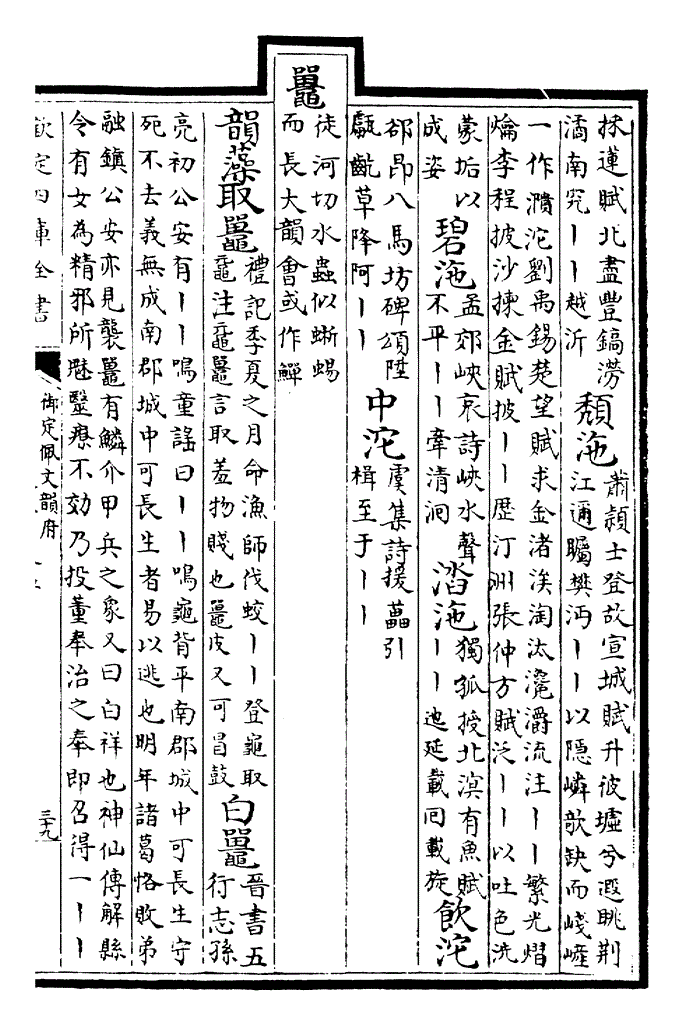 採蓮賦北盡豐鎬澇
潏南究丨丨越沂
頹沲
蕭頴士登故宣城賦升彼墟兮遐眺荆
江邇矚樊沔丨丨以隱嶙歆缺而嶘嵼
一作濆沱劉禹錫楚望賦求金渚涘淘汰瀺灂流注丨丨繁光熠
爚李程披沙揀金賦披丨丨歷汀洲張仲方賦泛丨丨以吐色洗
蒙垢以
成姿
碧沲
孟郊峽哀詩峽水聲
不平丨丨牽清洄
滔沲
獨孤授北溟有魚賦
丨丨迆延載回載旋
飲沱
郤昂八馬坊碑頌陞
齕草降阿丨丨
中沱
虞集詩援藟引
楫至于丨丨
鼉
徒河切水蟲似蜥蜴
而長大韻會或作鱓
韻藻取鼉
禮記季夏之月命漁師伐蛟丨丨登龜取
黿注黿鼉言取羞物賤也鼉皮又可冒鼓
白鼉
晉書五
行志孫
亮初公安有丨丨鳴童謡曰丨丨鳴龜背平南郡城中可長生守
死不去義無成南郡城中可長生者易以逃也明年諸葛恪敗弟
融鎮公安亦見襲鼉有鱗介甲兵之象又曰白祥也神仙傳解縣
令有女為精邪所魅毉療不効乃投董奉治之奉即召得一丨丨
欽定四庫全書
御定佩文韻府
三十九